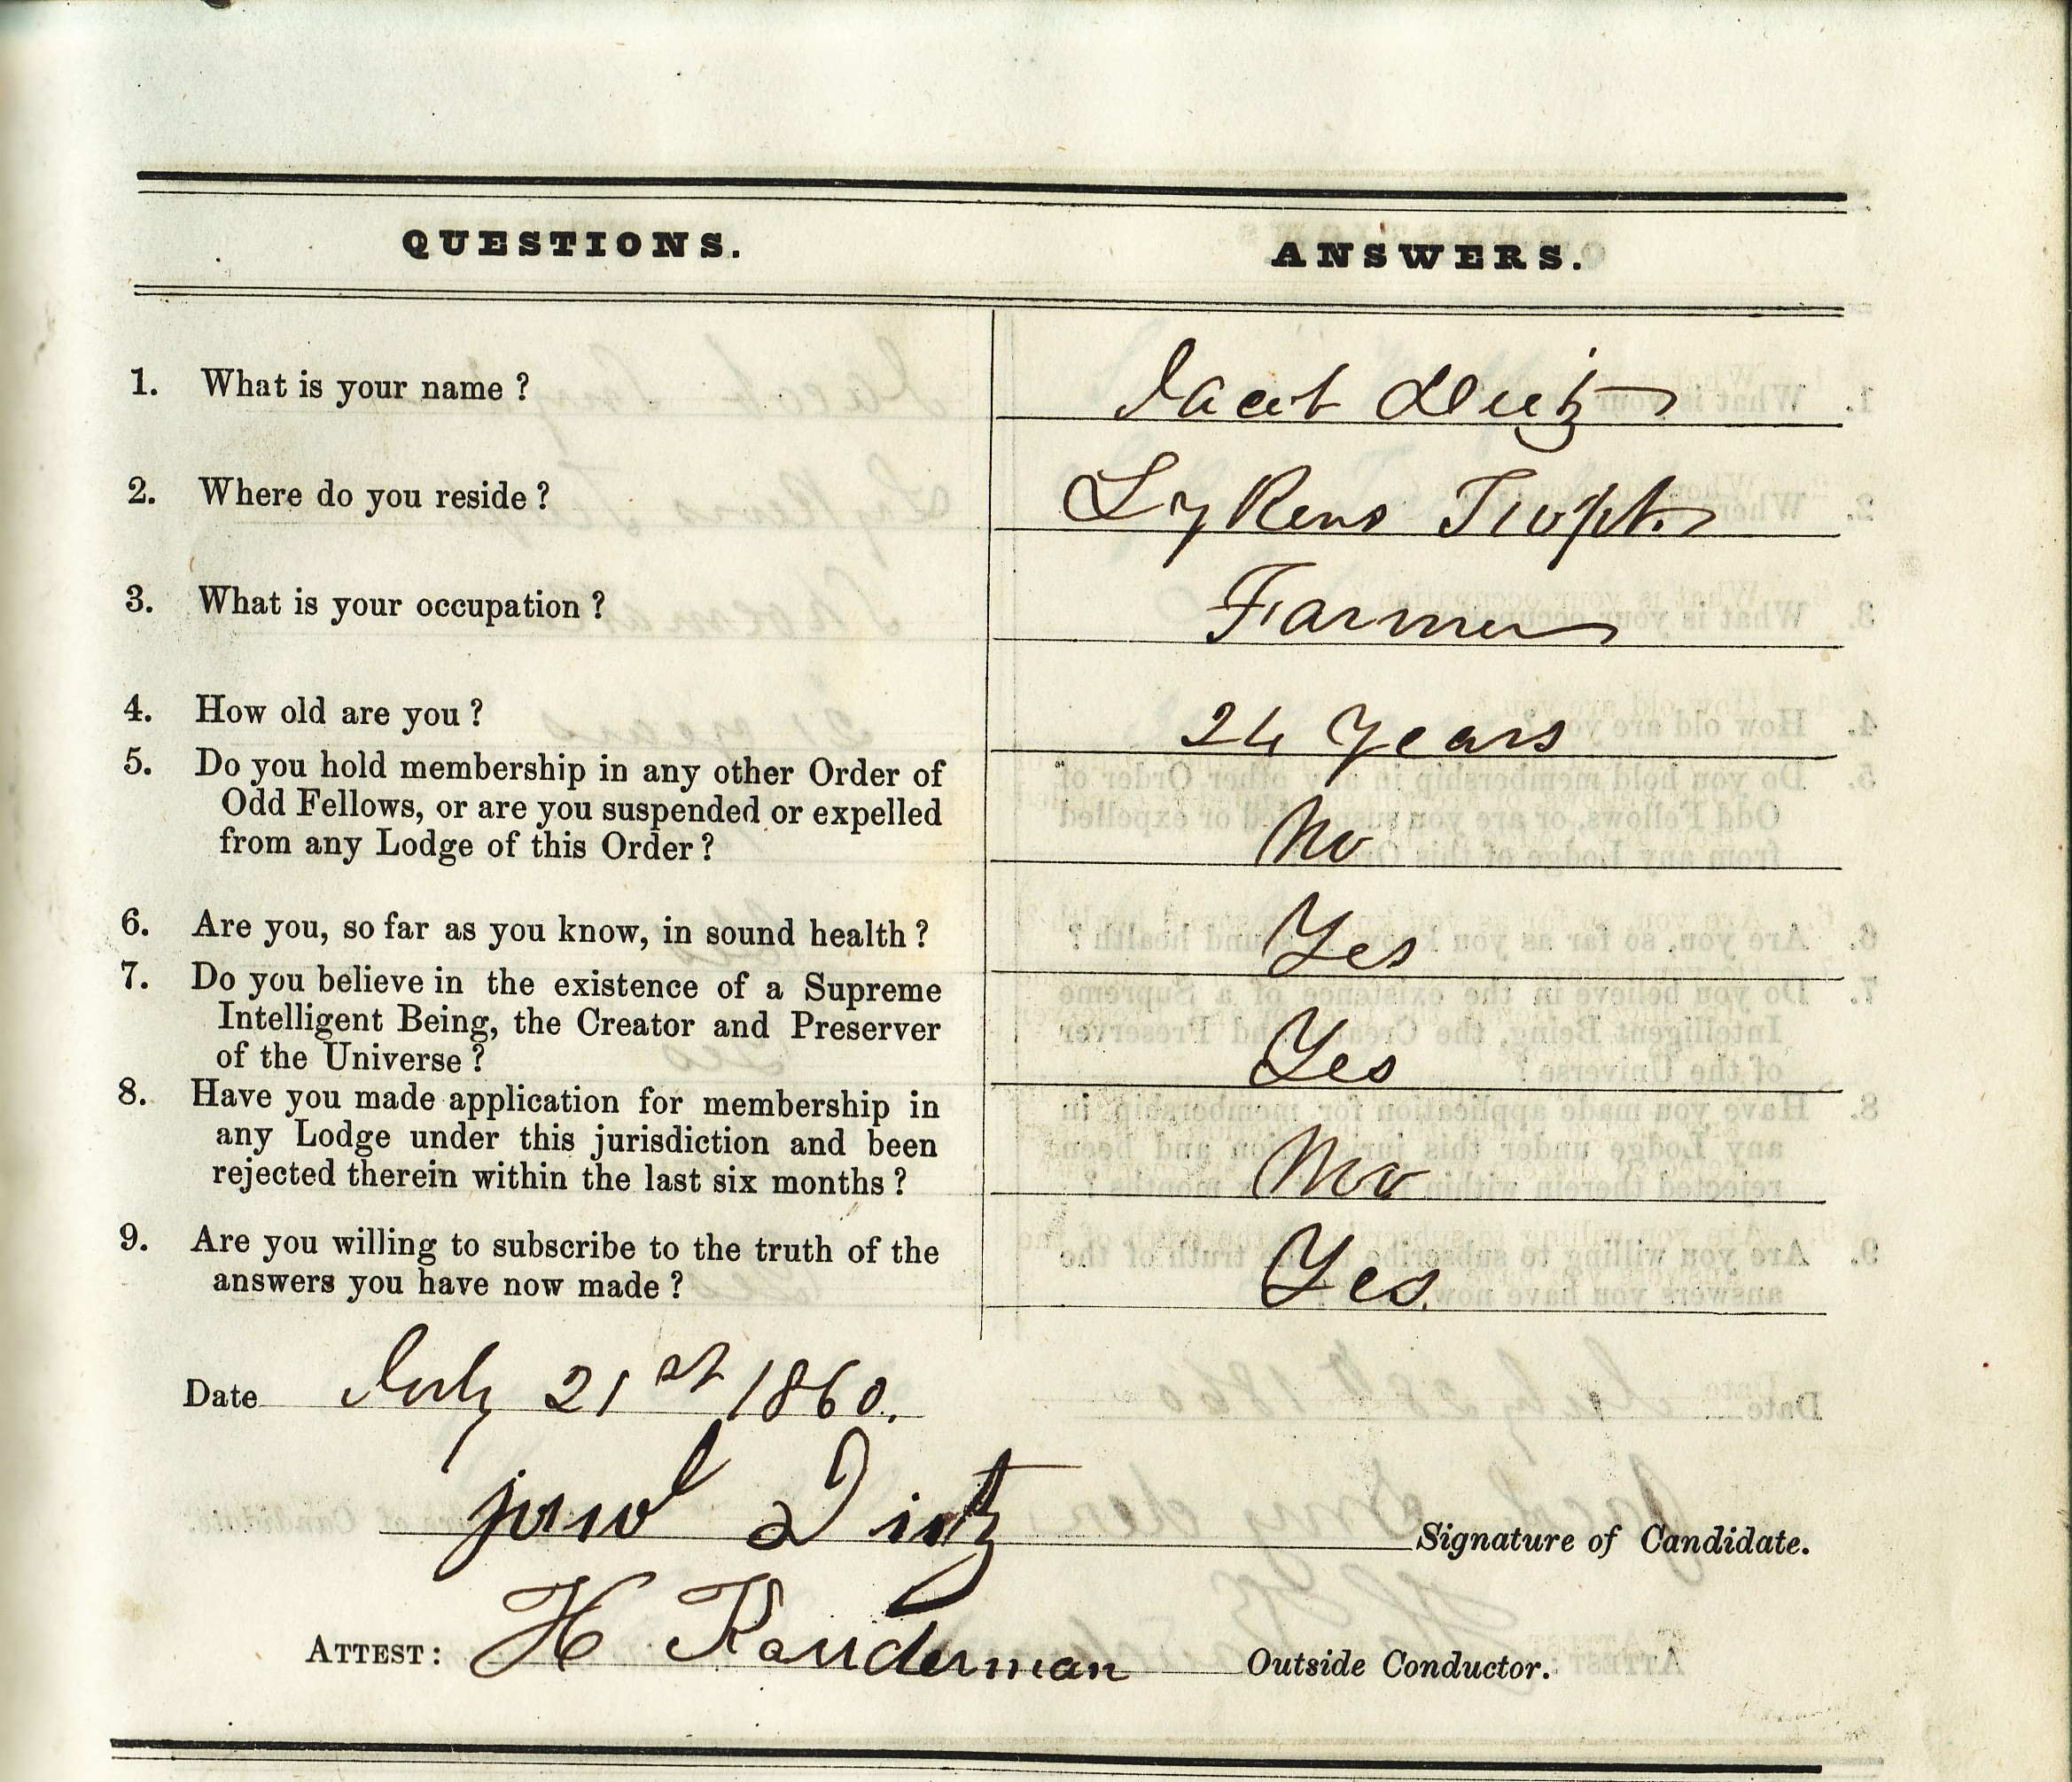 QUESTIONS. ANSWERS.
1. What is your name? Jacob Dietz
2. Where do you reside? Lykens Twpt.
3. What is your occupation? Farmer
4. How old are you? 24 Years
5. Do you hold membership in any other Order of
Odd Fellows, or are you suspended or expelled
from any Lodge of this Order? No
6. Are you, so far as you know, in sound health? Yes
7. Do you believe in the existence of a Supreme
Intelligent Being, the Creator and Preserver
of the Universe? Yes
8. Have you made application for membership in
any Lodge under this jurisdiction and been
rejected therein within the last six months? No
9. Are you willing to subscribe to the truth of the
answers you have now made? Yes.
Date July 21st 1860.
Dietz Signature of Candidate.
ATTEST: H Rauderman Outside Conductor.